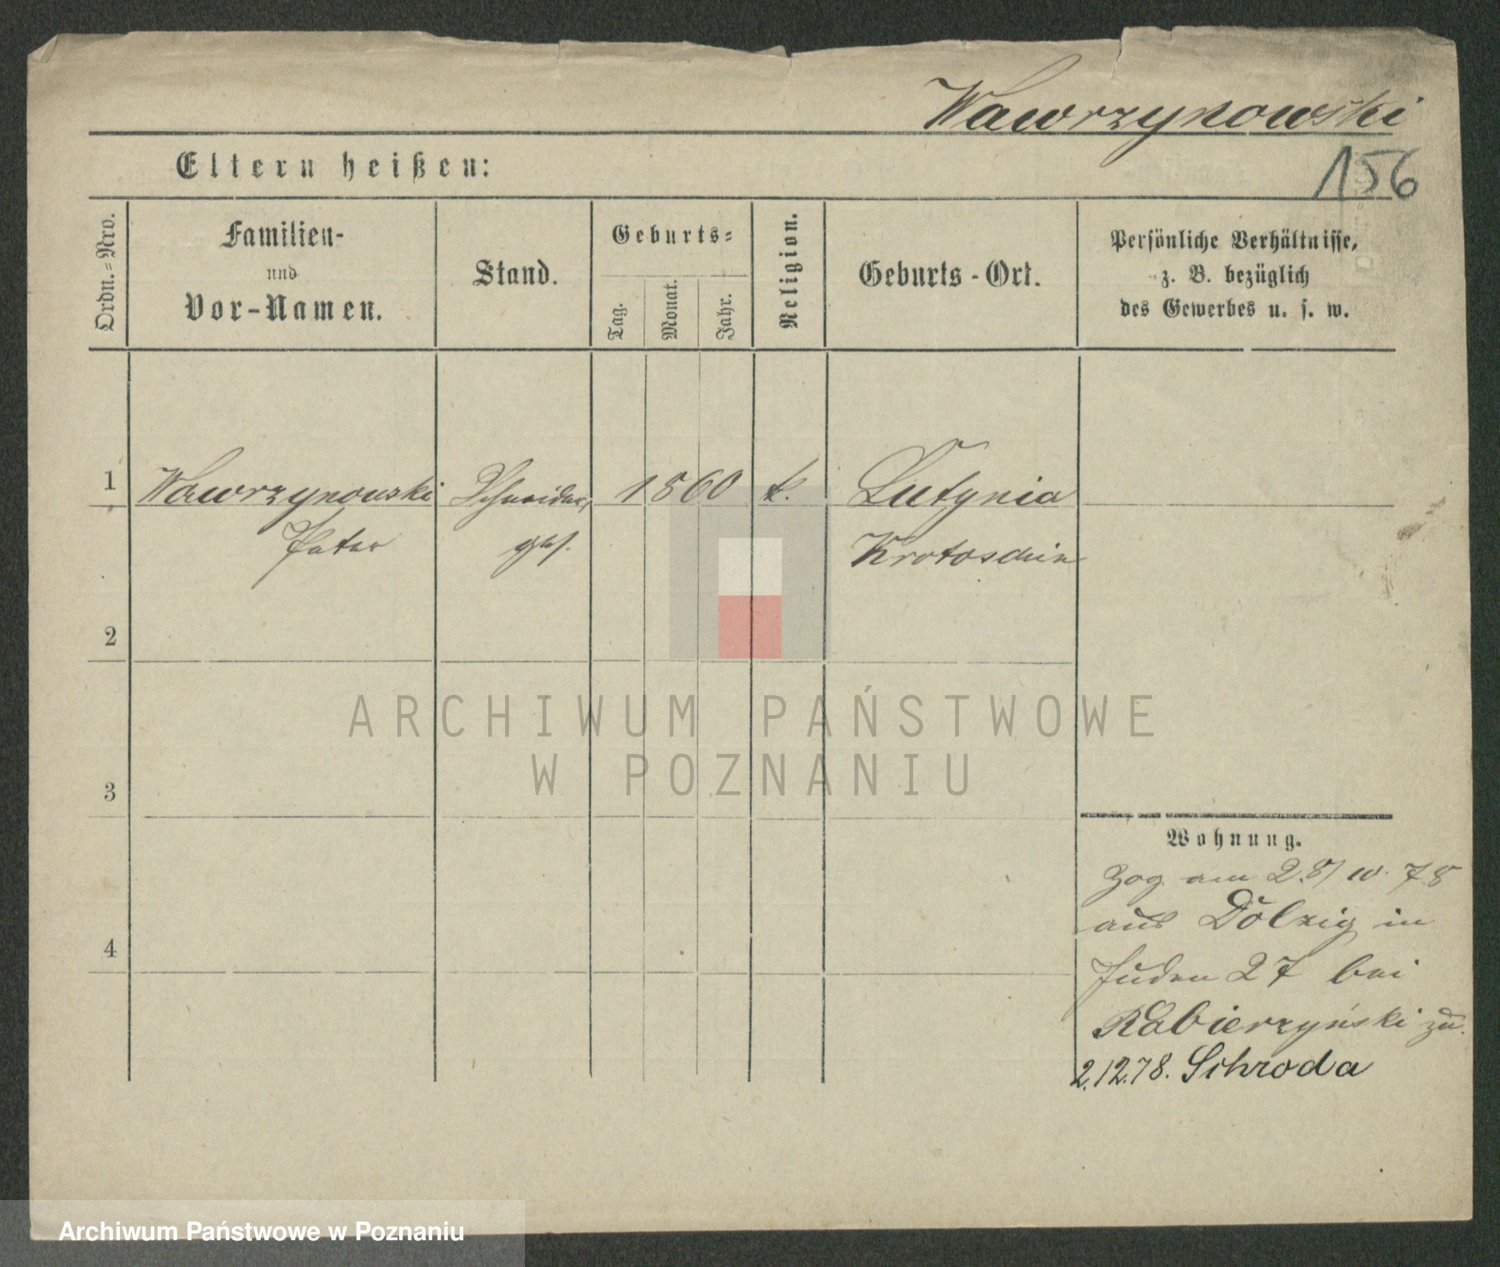 Wawrzynowski
156
Eltern heißen:
Ordn.=Nro.
Familien-
und
Vor-Namen.
Stand.
Geburts=
Tag.
Monat.
Jahr.
Religion.
Geburts-Ort.
Persönliche Verhältnisse,
z. B. bezüglich
des Gewerbes u. s. w.
1 Wawrzynowski Schneider, 1860 k. Lutynia
Peter ges. Krotoschin
2
3
4
Wohnung.
Zog am 28/10. 78
aus Dölzig in
Juden 27 bei
Rabierzyński zu.
2.12.78. Schroda
ARCHIWUM PAŃSTWOWE
W POZNANIU
Archiwum Państwowe w Poznaniu